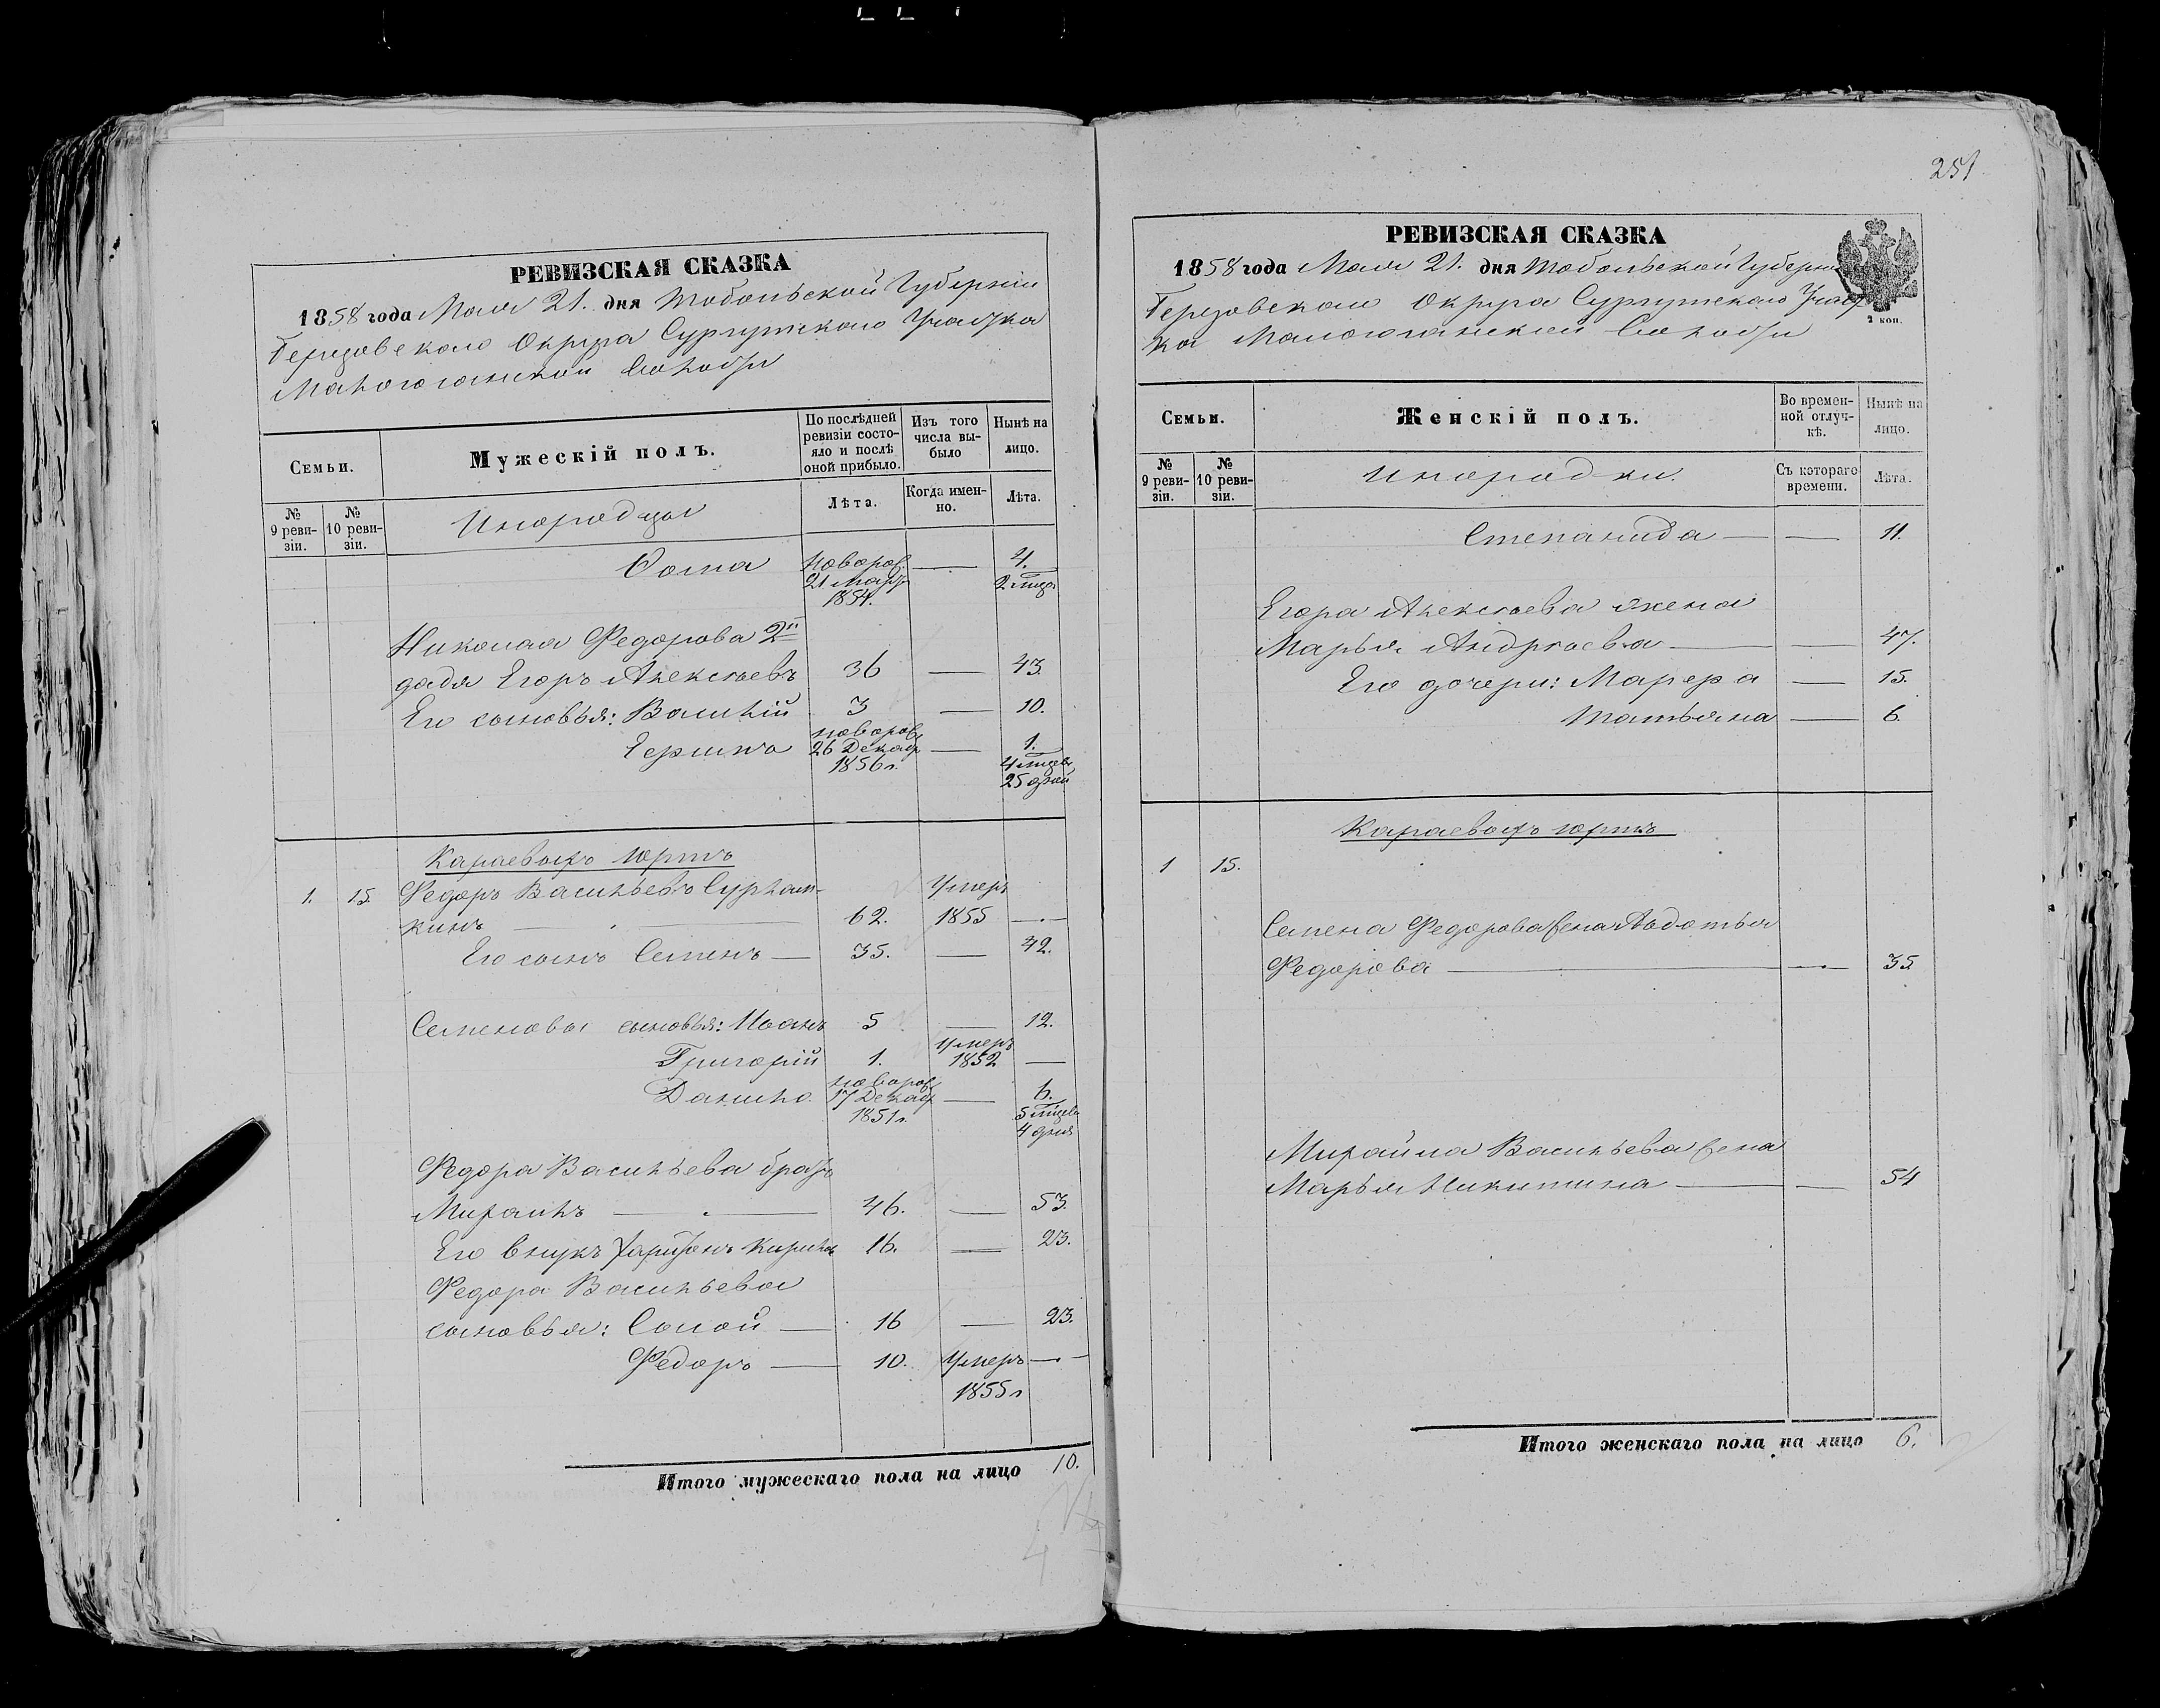 251
РЕВИЗСКАЯ СКАЗКА
1858 года Мая 21. дня Тобольской Губерніи
Березовскаго Округа Сургутскаго Участка
Малоюганской Волости
Семьи.
Мужескій полъ.
По послѣдней ревизіи состояло и послѣ оной прибыло.
Изъ того числа выбыло
Нынѣ на лицо.
№ 9 ревизіи.
№ 10 ревизіи.
Инородцы
Лѣта.
Когда именно.
Лѣта.
Фома новорож. — 4.
21 Мар. 2 мѣся.
1854.
Николая Федорова 2й
дядя Егоръ Алексѣевъ 36 — 43.
Его сыновья: Василій 3 — 10.
новорож. 26 Декаб. 1856 г. — 1. 4 мѣсяц. 25 дней
Караевыхъ юртъ
1. 15. Федоръ Васильевъ Сурлом-
кинъ — 62. Умеръ 1855 —
Его сынъ Семенъ — 35. — 42.
Семеновы сыновья: Иванъ 5 — 12.
Григорій 1. Умеръ 1852 —
Данило. новорож. 17 Декаб. 1851 г. — 6. 5 мѣсяц. 4 дня
Федора Васильева братъ
Михаилъ — 46. — 53.
Его внукъ Харитонъ 16. — 23.
Федора Васильева
сыновья: — 16 — 23.
Федоръ — 10. Умеръ —
1855 г
Итого мужескаго пола на лицо 10.
РЕВИЗСКАЯ СКАЗКА
1858 года Мая 21. дня Тобольской Губерніи
Березовскаго Округа Сургутскаго Участ-
ка Малоюганской Волости
2 коп.
Семьи.
Женскій полъ.
Во временной отлучкѣ.
Нынѣ на лицо.
№ 9 ревизіи.
№ 10 ревизіи.
Инородки.
Съ котораго времени.
Лѣта.
Степанида — — 11.
Егора Алексѣева жена
Марья Андреева — — 47.
Его дочери: — 15.
Татьяна — 6.
Караевыхъ юртъ
1 15.
Семена Федорова жена Авдотья
Федорова — — 35
Михайла Васильева жена
Марья Никитина — — 54
Итого женскаго пола на лицо 6.